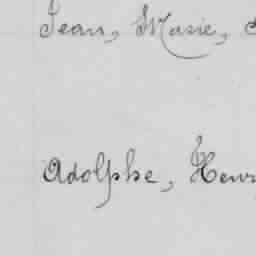 Jean, Marie,
Adolphe, Henr